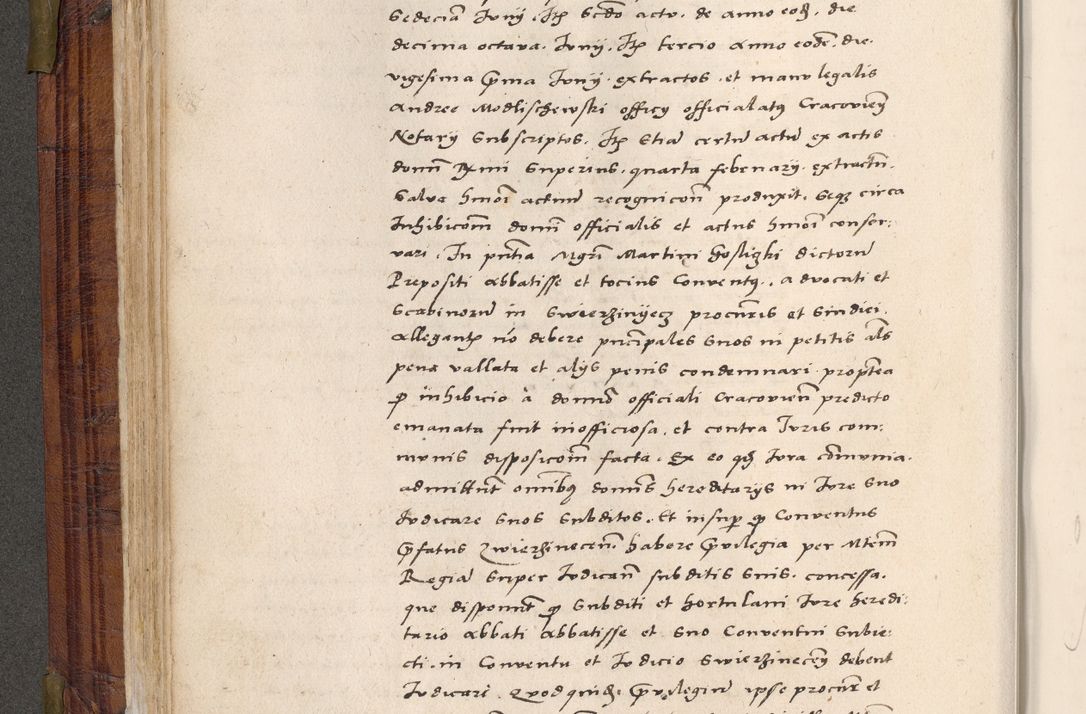 Sedeciã Junij. Itẽ Scďo actu. de Anno eoď. die
decima octava. Junij. Itẽ tercio Anno eodẽ. die.
vigesima p̃ma Junij. extractos. et manu legalis
Andree Modlischewski officij officialatus Cracovieñ
Notarij Subscriptos. Itẽ Etiã certũ actũ ex actis
domñ R̃mi Superius. quarta febrnarij. extractũ.
Salvo hmoi actum recognicoñ produxit. Seqz circa
Inhibicoñm domñ officialis et actus hmoi conser:
vari. In pñtia Mgri Martini Gosliczki dictorũ
Prepositi Abbatisse et tocius Conventus. advocati et
Scabinorũ in Swierzinijecz procuris et Sindici.
Allegantẽ nõ debere pñcipales Suos in petitis als
pena vallata et alijs penis condemnari. proptea
qp inhibicio à domño officiali Cracovieñ predicto
emanata fuit inofficiosa. et contra Juris com:
munis disposicoñm facta. Ex eo qz Jura cõmunia.
admittunt omibus domis hereditarijs in Jure Suo
Judicare Suos Subditos. Et insup qp Conventus
p̃fatus Zwierzineceñ. habere p̃vilegia per Mtem
Regiã Super Judicañ subditis Suis. concessa.
que disponut qp Subditi et hortulani Jure heredi:
tario Abbati Abbatisse et Suo Conventui Subie:
cti. in Conventu et Judicio Swierzineceñ debent
Judicari. Quod quidẽ. p̃vilegiũ ipse procur et